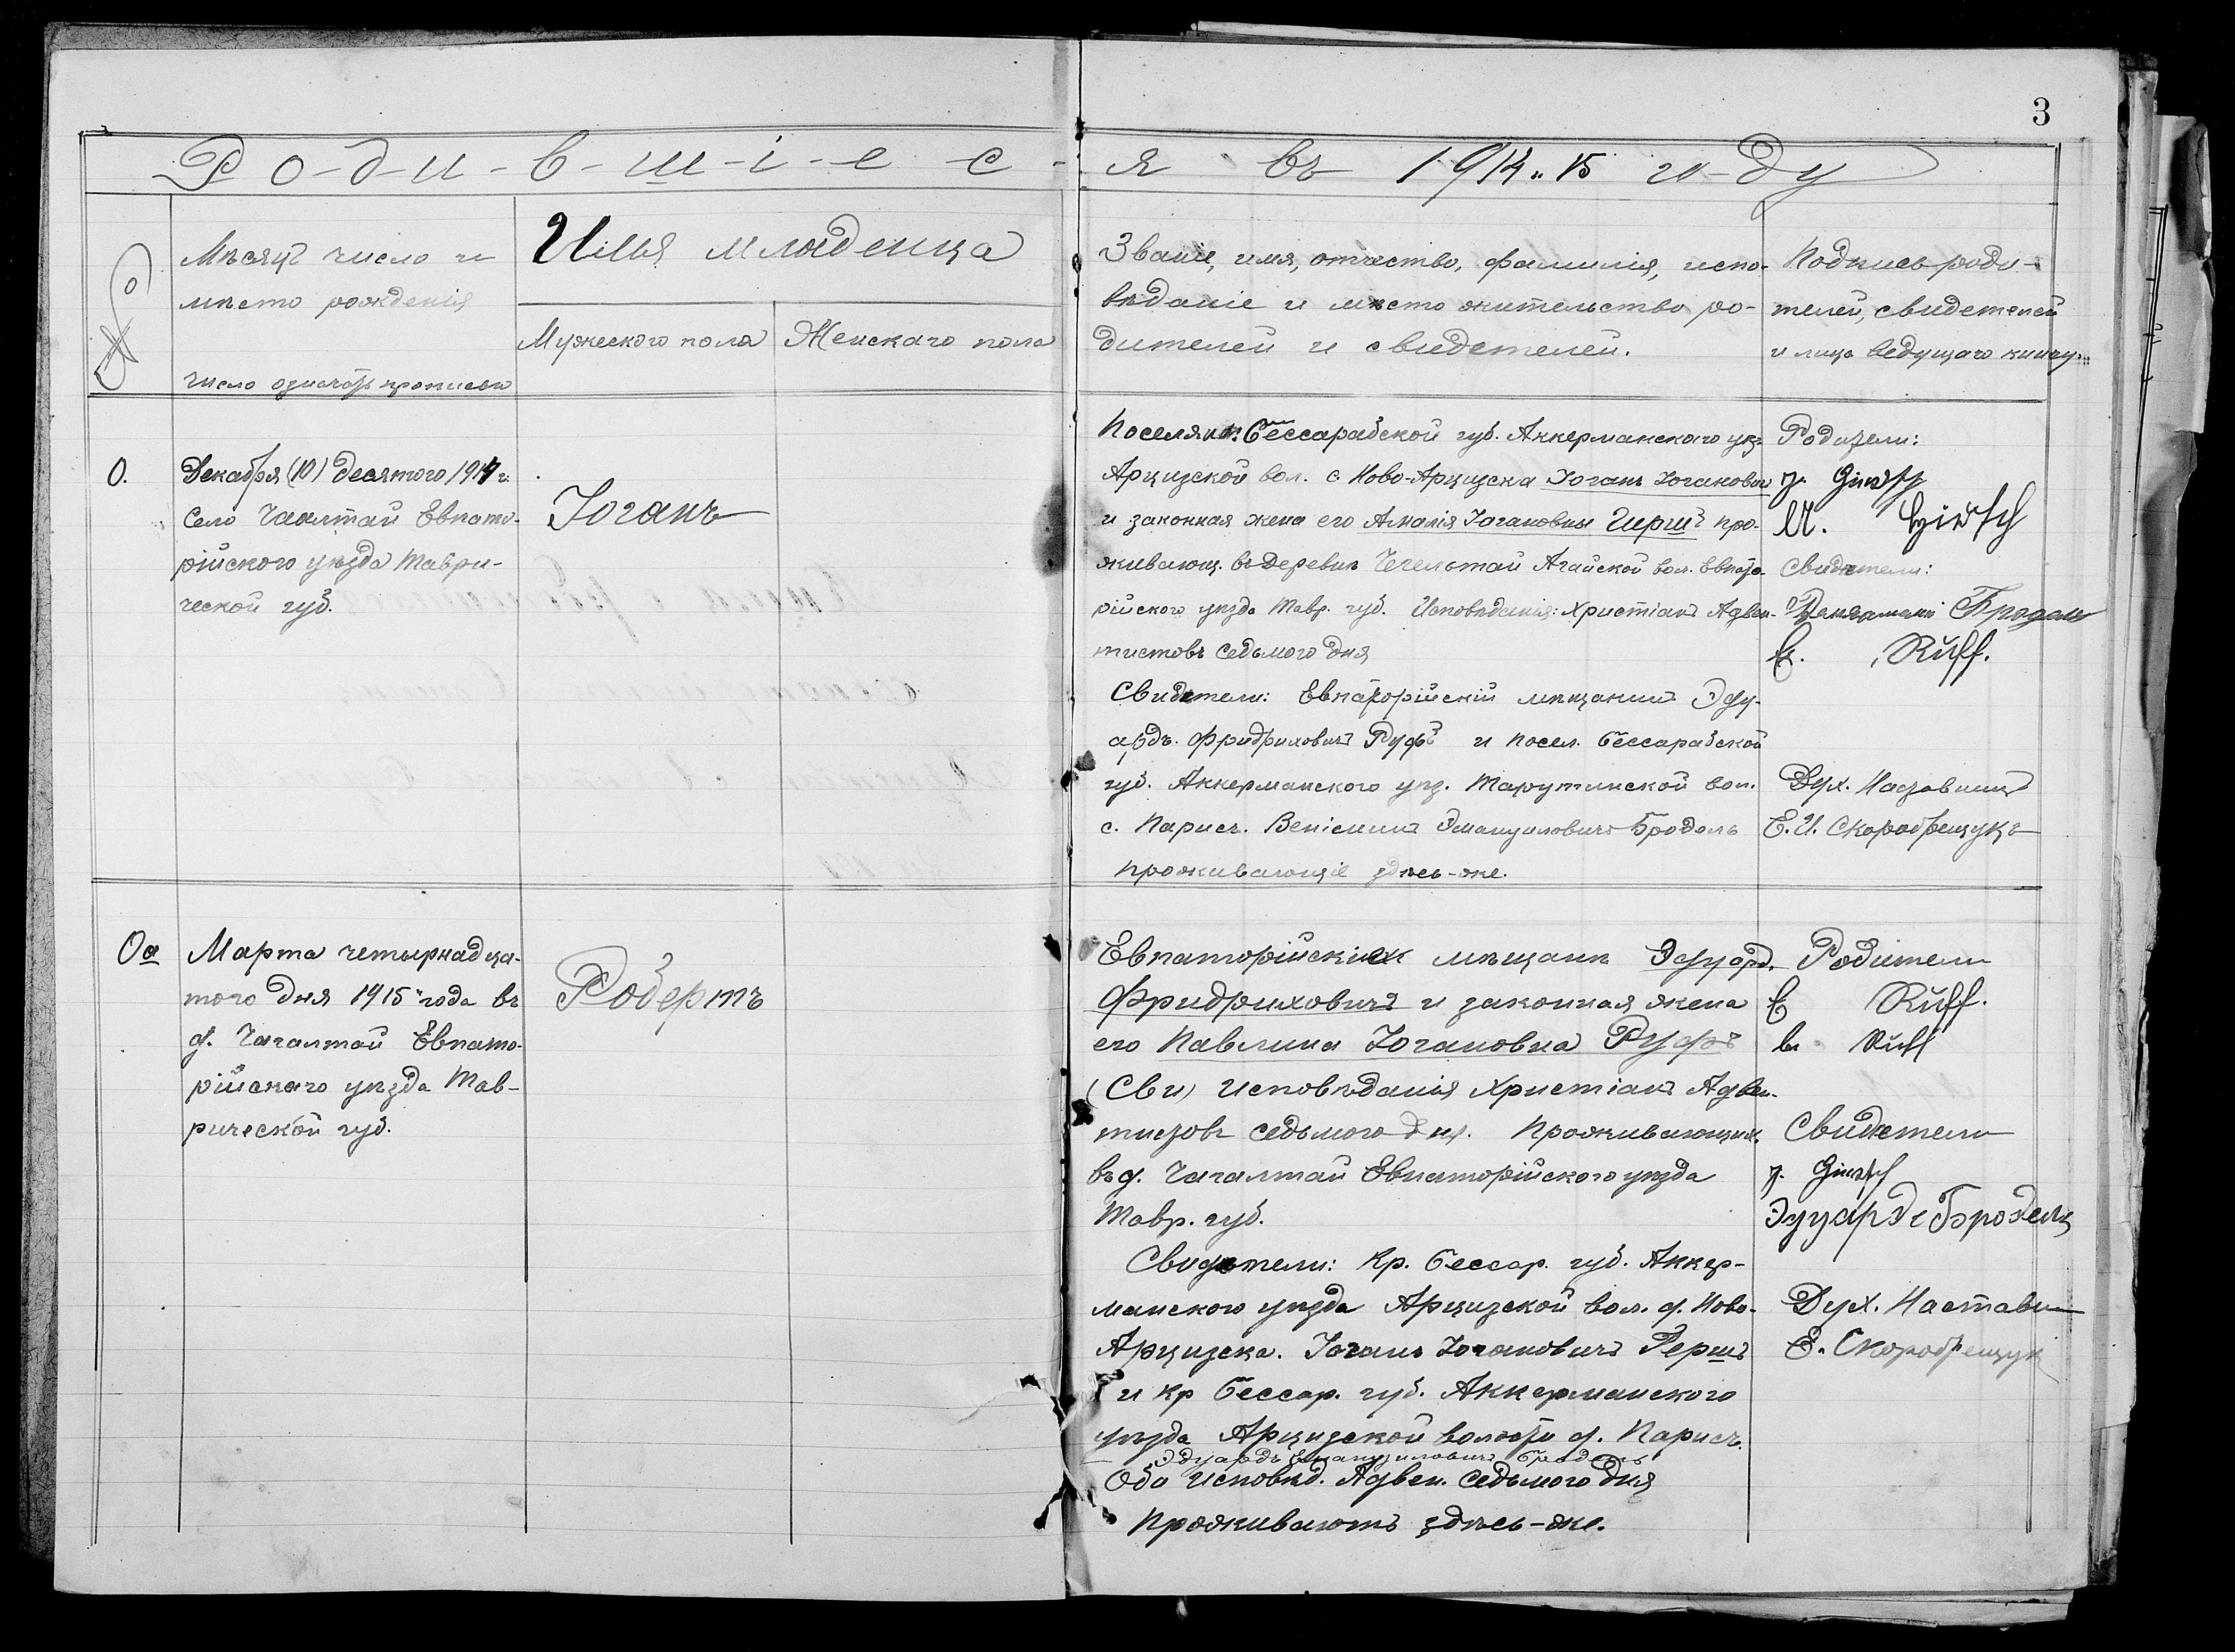 3
Родившіеся въ 1914-15 году
№
Мѣсяцъ число и
мѣсто рожденія
число означать прописью
Имя младенца
Мужескаго пола
Женскаго пола
Званіе, имя, отчество, фамилія, испо-
вѣданіе и мѣсто жительство ро-
дителей и свидетелей.
Подпись роди-
телей, свидетелей
и лица ведущаго книгу
0.
Декабря (10) десятого 1914 г.
Село Чагалтай Евпато-
рійского уѣзда Таври-
ческой губ.
Іоганъ
Поселянъ Бессарабской губ. Аккерманского уѣз.
Арцизской вол. с. Ново-Арцизска Іоганъ Іоганович
и законная жена его Амалія Іогановны Гиршъ про-
живающ. въ деревнѣ Чегелтай Агайской вол. Евпато-
рійского уѣзда Тавр. губ. Исповѣданія: Христіанъ Адвен-
тистовъ Седьмого Дня
Свидетели: Евпаторійскій мѣщанинъ Эду-
ардъ Фридриховичъ Руфъ и посел. Бессарабской
губ. Аккерманского уѣз. Тарутинской вол.
с. Парисъ. Веніаминъ Эмануиловичъ Бродель
проживающіе здѣсь-же.
Родители:
J. Hirsch
A. Hirsch
Свидетели:
Веняаминъ Бродель
E. Ruff.
Дух. Наставникъ
Е. И. Скоробрещукъ
0а
Марта четырнадца-
того дня 1915 года въ
д. Чагалтай Евпато-
рійскаго уѣзда Тав-
рической губ.
Робертъ
Евпаторійских мѣщанъ Эдуард.
Фридриховичъ и законная жена
его Павлина Іогановна Руфъ
(Сви) исповѣданія Христіанъ Адвен-
тистовъ седьмого дня. Проживающих
въ д. Чагалтай Евпаторійского уѣзда
Тавр. губ.
Свидетели: Кр. Бессар. губ. Аккер-
манского уѣзда Арцизской вол. д. Ново-
Арцизска. Іоганъ Іогановичъ Гершъ
и кр Бессар. губ. Аккерманского
уѣзда Арцизской волости д. Парисъ.
Эдуардъ Емануиловичъ Бродель
Оба исповѣд. Адвен. Седьмого Дня
Проживаютъ здѣсь-же.
Родители
E Ruff.
Ruff
Свидетели
J. Hirsch
Эдуардъ Бродель
Дух. Настави
Е. Скоробрещук